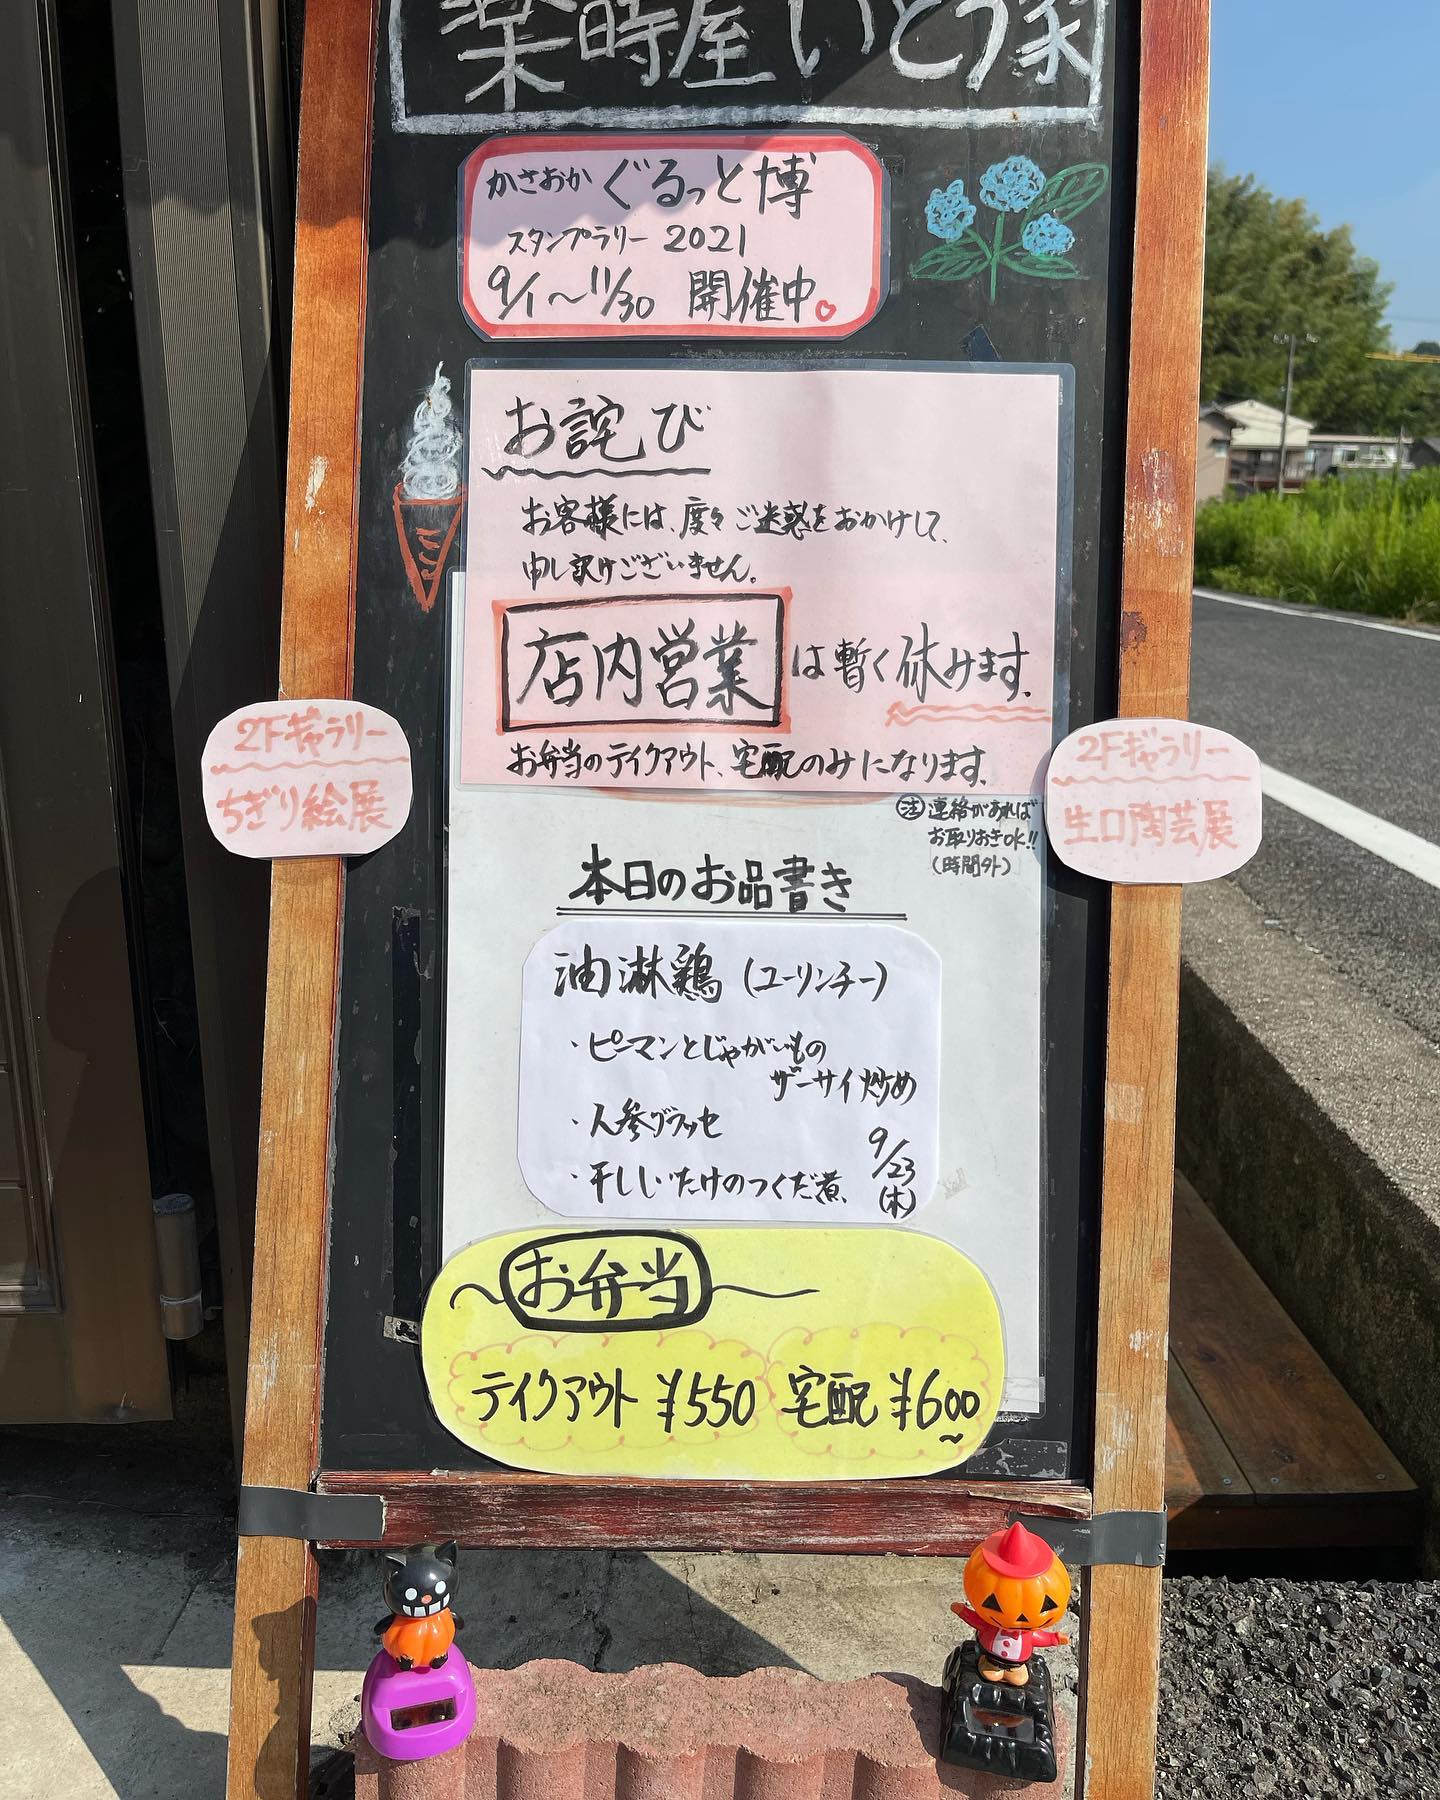 楽時屋いとう家
かさおか ぐるっと博
スタンプラリー 2021
9/1〜11/30 開催中。
お詫び
お客様には、度々ご迷惑をおかけして、
申し訳けございません。
店内営業は暫く休みます。
お弁当のテイクアウト、宅配のみになります。
注 連絡があれば
お取りおきOK!!
(時間外)
2Fギャラリー
ちぎり絵展
2Fギャラリー
生口陶芸展
本日のお品書き
油淋鶏(ユーリンチー)
・ピーマンとじゃがいもの
ザーサイ炒め
・人参グラッセ
・干ししいたけのつくだ煮、
9/23
(木)
お弁当
テイクアウト ¥550 宅配 ¥600〜